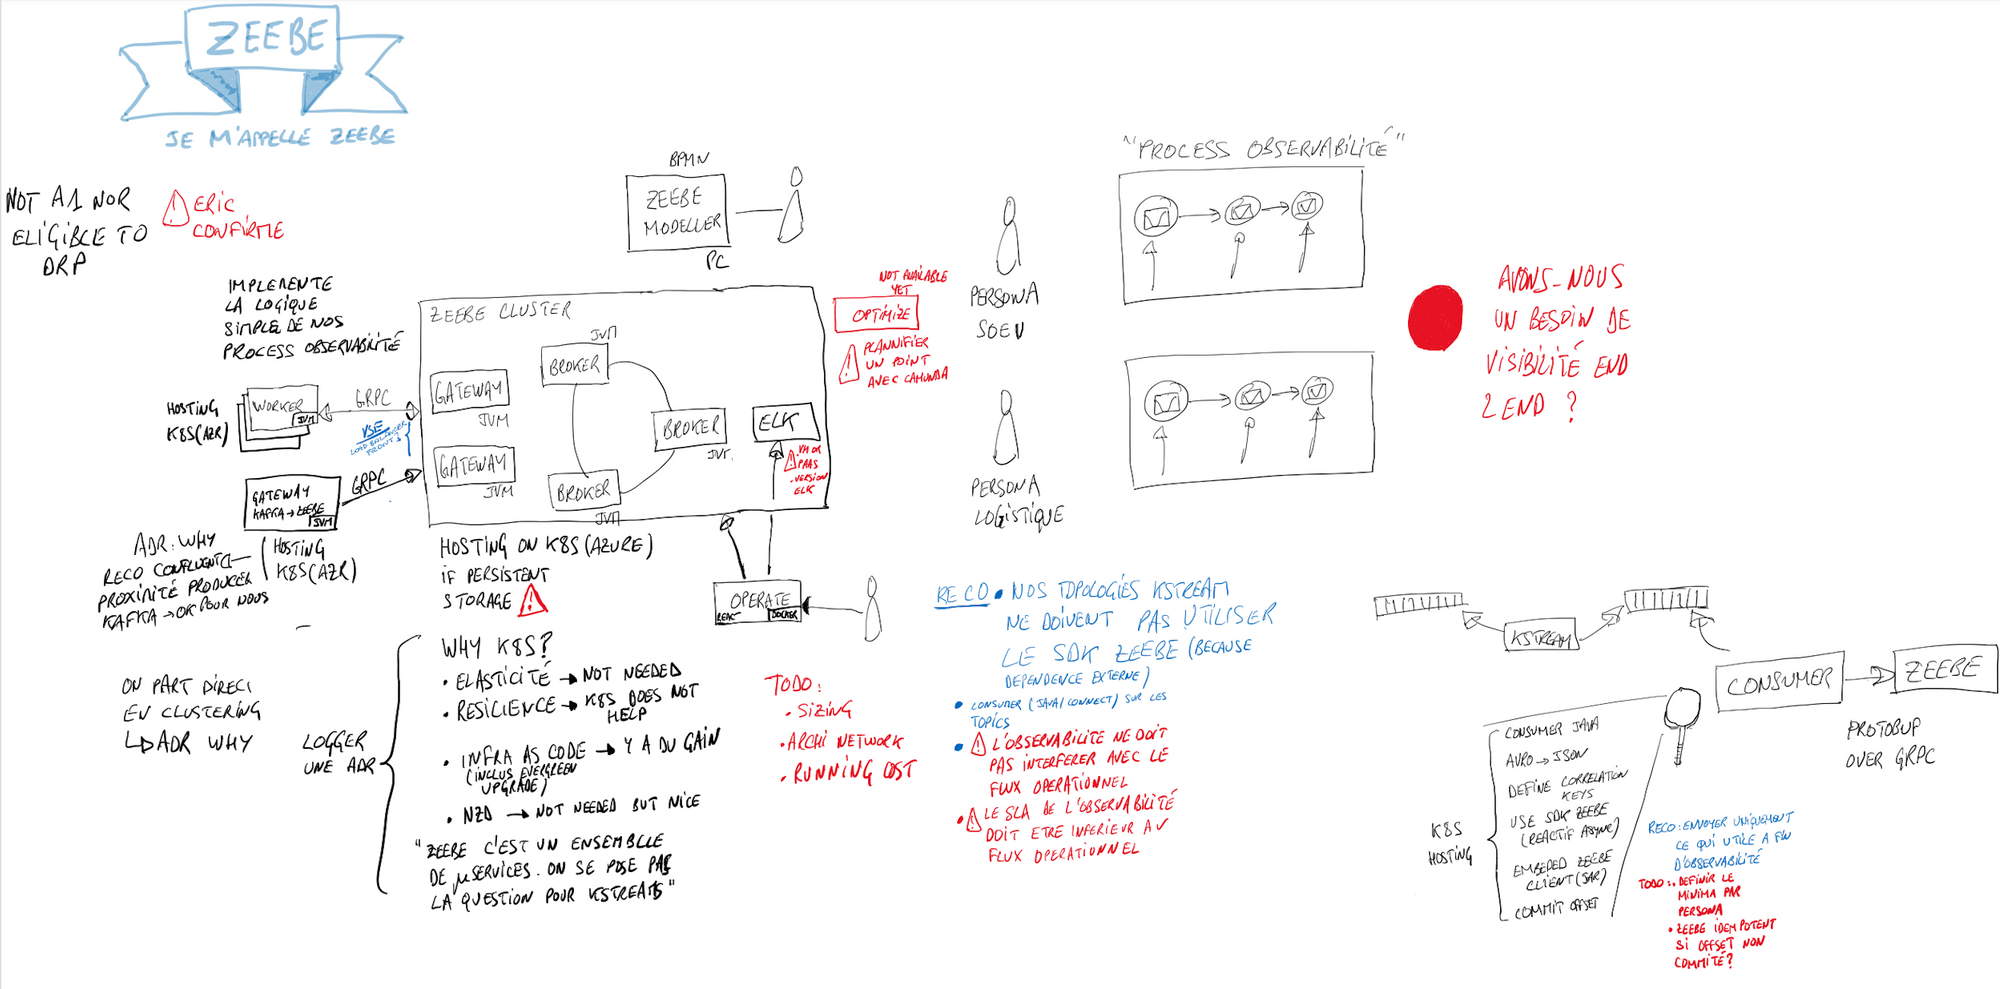 ZEEBE
JE M'APPELLE ZEEBE
NOT A1 NOR
ELIGIBLE TO
DRP
ERIC
CONFIRME
IMPLEMENTE
LA LOGIQUE
SIMPLE DE NOS
PROCESS OBSERVABILITÉ
HOSTING
K8S(AZR)
WORKER
JVM
GRPC
VSE
LOAD BALANCER
FRONT
GATEWAY
KAFKA → ZEEBE
JVM
GRPC
HOSTING
K8S(AZR)
ADR: WHY
RECO CONFLUENT
PROXIMITÉ PRODUCER
KAFKA → OK POUR NOUS
BPMN
ZEEBE
MODELLER
PC
ZEEBE CLUSTER
GATEWAY
JVM
GATEWAY
JVM
JVM
BROKER
BROKER
JVM
BROKER
JVM
ELK
VM OR
PAAS
VERSION
ELK
NOT AVAILABLE
YET
OPTIMIZE
PLANNIFIER
UN POINT
AVEC CAMUNDA
HOSTING ON K8S (AZURE)
IF PERSISTENT
STORAGE
OPERATE
REACT
DOCKER
ON PART DIRECT
EN CLUSTERING
↳ ADR WHY
LOGGER
UNE ADR
WHY K8S?
• ELASTICITÉ → NOT NEEDED
• RESILIENCE → K8S DOES NOT
HELP
• INFRA AS CODE → Y A DU GAIN
(INCLUS EVERGREEN
UPGRADE)
• NZD → NOT NEEDED BUT NICE
"ZEEBE C'EST UN ENSEMBLE
DE µSERVICES. ON SE POSE PAS
LA QUESTION POUR KSTREAMS"
TODO:
• SIZING
• ARCHI NETWORK
• RUNNING COST
"PROCESS OBSERVABILITÉ"
PERSONA
SOEU
PERSONA
LOGISTIQUE
AVONS-NOUS
UN BESOIN DE
VISIBILITÉ END
2 END ?
RECO • NOS TOPOLOGIES KSTREAM
NE DOIVENT PAS UTILISER
LE SDK ZEEBE (BECAUSE
DEPENDENCE EXTERNE)
• CONSUMER (JAVA/CONNECT) SUR LES
TOPICS
• L'OBSERVABILITE NE DOIT
PAS INTERFERER AVEC LE
FLUX OPERATIONNEL
• LE SLA DE L'OBSERVABILITÉ
DOIT ETRE INFERIEUR AU
FLUX OPERATIONNEL
KSTREAM
CONSUMER
ZEEBE
PROTOBUP
OVER GRPC
K8S
HOSTING
CONSUMER JAVA
AVRO → JSON
DEFINE CORRELATION
KEYS
USE SDK ZEEBE
(REACTIF ASYNC)
EMBEDED ZEEBE
CLIENT (JAR)
COMMIT OFFSET
RECO: ENVOYER UNIQUEMENT
CE QUI UTILE A FIN
D'OBSERVABILITÉ
TODO: • DEFINIR LE
MINIMA PAR
PERSONA
• ZEEBE IDEMPOTENT
SI OFFSET NON
COMMITÉ?